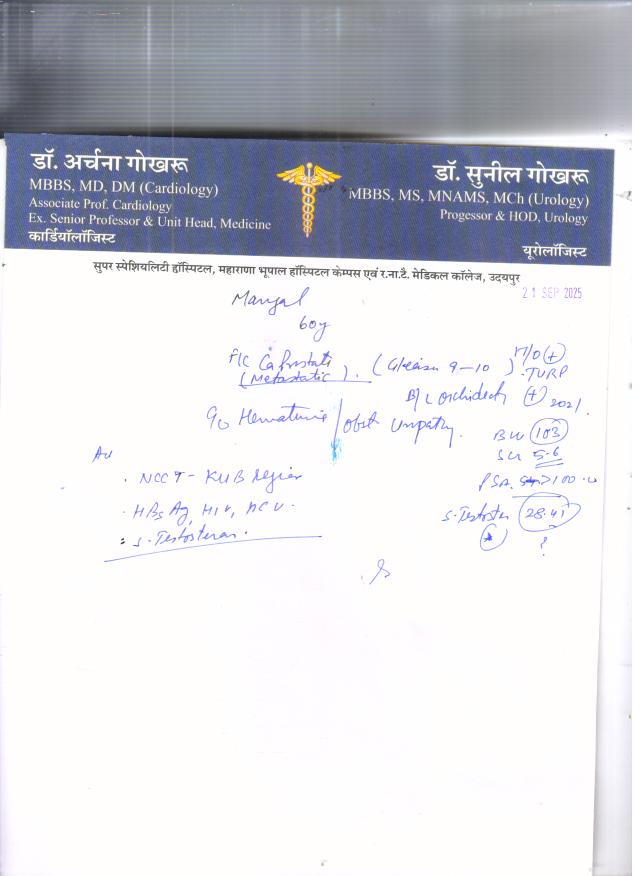 डॉ. अर्चना गोखरू
MBBS, MD, DM (Cardiology)
Associate Prof. Cardiology
Ex. Senior Professor & Unit Head, Medicine
कार्डियॉलॉजिस्ट
डॉ. सुनील गोखरू
MBBS, MS, MNAMS, MCh (Urology)
Progessor & HOD, Urology
यूरोलॉजिस्ट
सुपर स्पेशियलिटी हॉस्पिटल, महाराणा भूपाल हॉस्पिटल केम्पस एवं र.ना.टै. मेडिकल कॉलेज, उदयपुर
21 SEP 2025
Mangal
60y
Ca Prostate (Gleason 9-10) H/O (+)
(Metastatic). TURP
B/L orchidect (+) 2021.
Hematuria / obst Uropathy.
BU 103
SCr 5.6
NCCT - KUB Region
PSA >100
HBsAg, HIV, HCV.
S. Testoster 28.41
S. Testosteron.
?